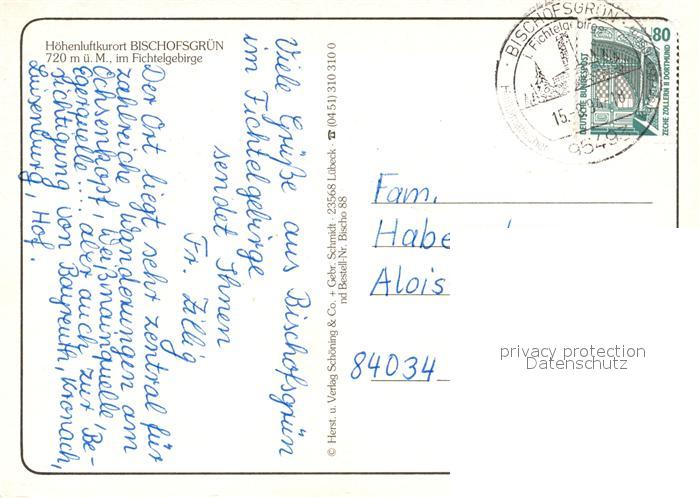 Höhenluftkurort BISCHOFSGRÜN
720 m ü. M., im Fichtelgebirge
Viele Grüße aus Bischofsgrün
im Fichtelgebirge
sendet Ihnen
Fr. Zillig
Der Ort liegt sehr zentral für
zahlreiche Wanderungen am
Ochsenkopf, Weißmainquelle,
Egerquelle ... aber auch zur Be-
sichtigung von Bayreuth, Kronach,
Luisenburg, Hof.
© Herst. u. Verlag Schöning & Co. + Gebr. Schmidt · 23568 Lübeck · ☎ (04 51) 310 310 0
nd Bestell-Nr. Bischo 88
BISCHOFSGRÜN
Fichtelgebirge
15.
95493
80
DEUTSCHE BUNDESPOST
ZECHE ZOLLERN II DORTMUND
Fam.
Habe
Alois
84034
privacy protection
Datenschutz